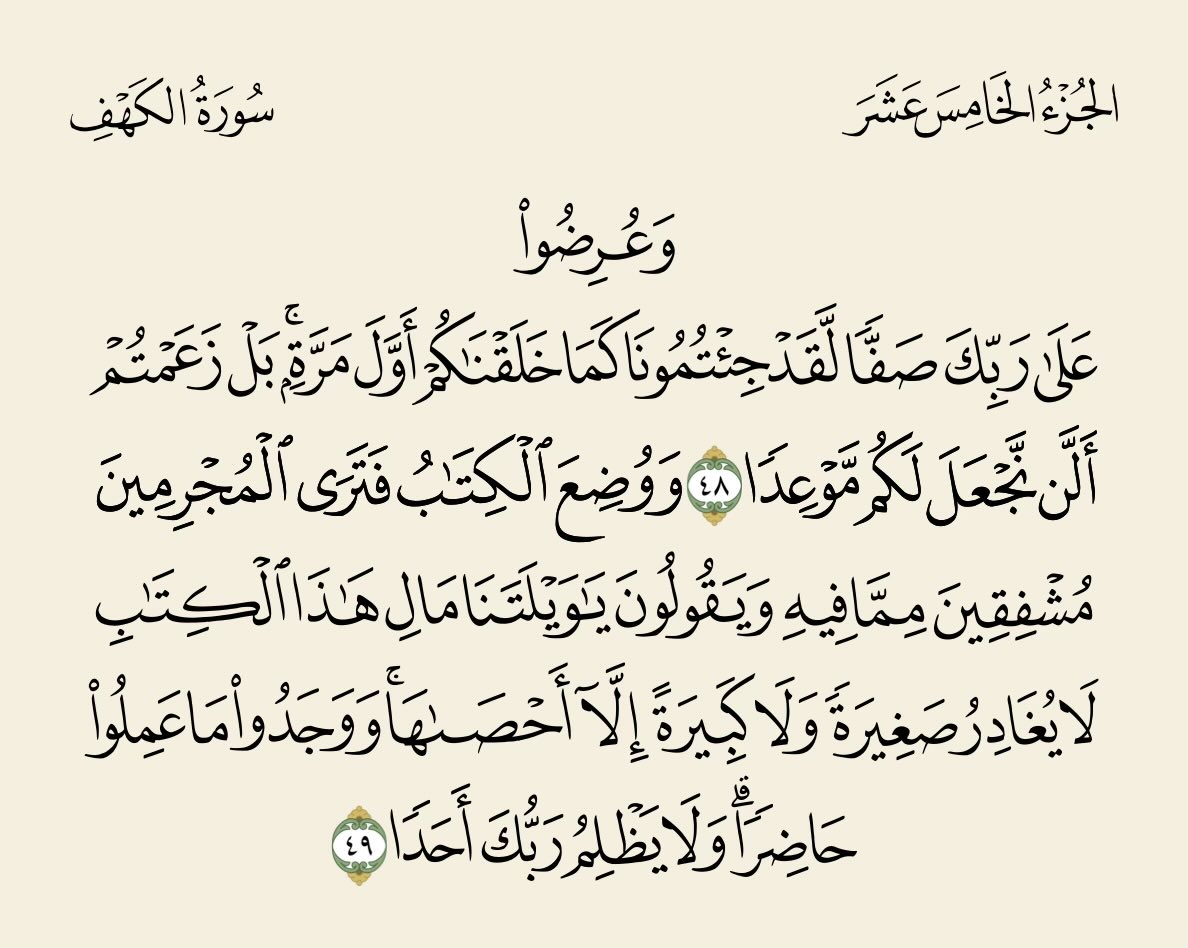 الجُزْءُ الخَامِسَ عَشَرَ سُورَةُ الكَهْفِ
وَعُرِضُوا۟
عَلَىٰ رَبِّكَ صَفًّا لَّقَدْ جِئْتُمُونَا كَمَا خَلَقْنَـٰكُمْ أَوَّلَ مَرَّةٍۭ ۚ بَلْ زَعَمْتُمْ
أَلَّن نَّجْعَلَ لَكُم مَّوْعِدًا ٤٨ وَوُضِعَ ٱلْكِتَـٰبُ فَتَرَى ٱلْمُجْرِمِينَ
مُشْفِقِينَ مِمَّا فِيهِ وَيَقُولُونَ يَـٰوَيْلَتَنَا مَالِ هَـٰذَا ٱلْكِتَـٰبِ
لَا يُغَادِرُ صَغِيرَةً وَلَا كَبِيرَةً إِلَّآ أَحْصَىٰهَا ۚ وَوَجَدُوا۟ مَا عَمِلُوا۟
حَاضِرًا ۗ وَلَا يَظْلِمُ رَبُّكَ أَحَدًا ٤٩